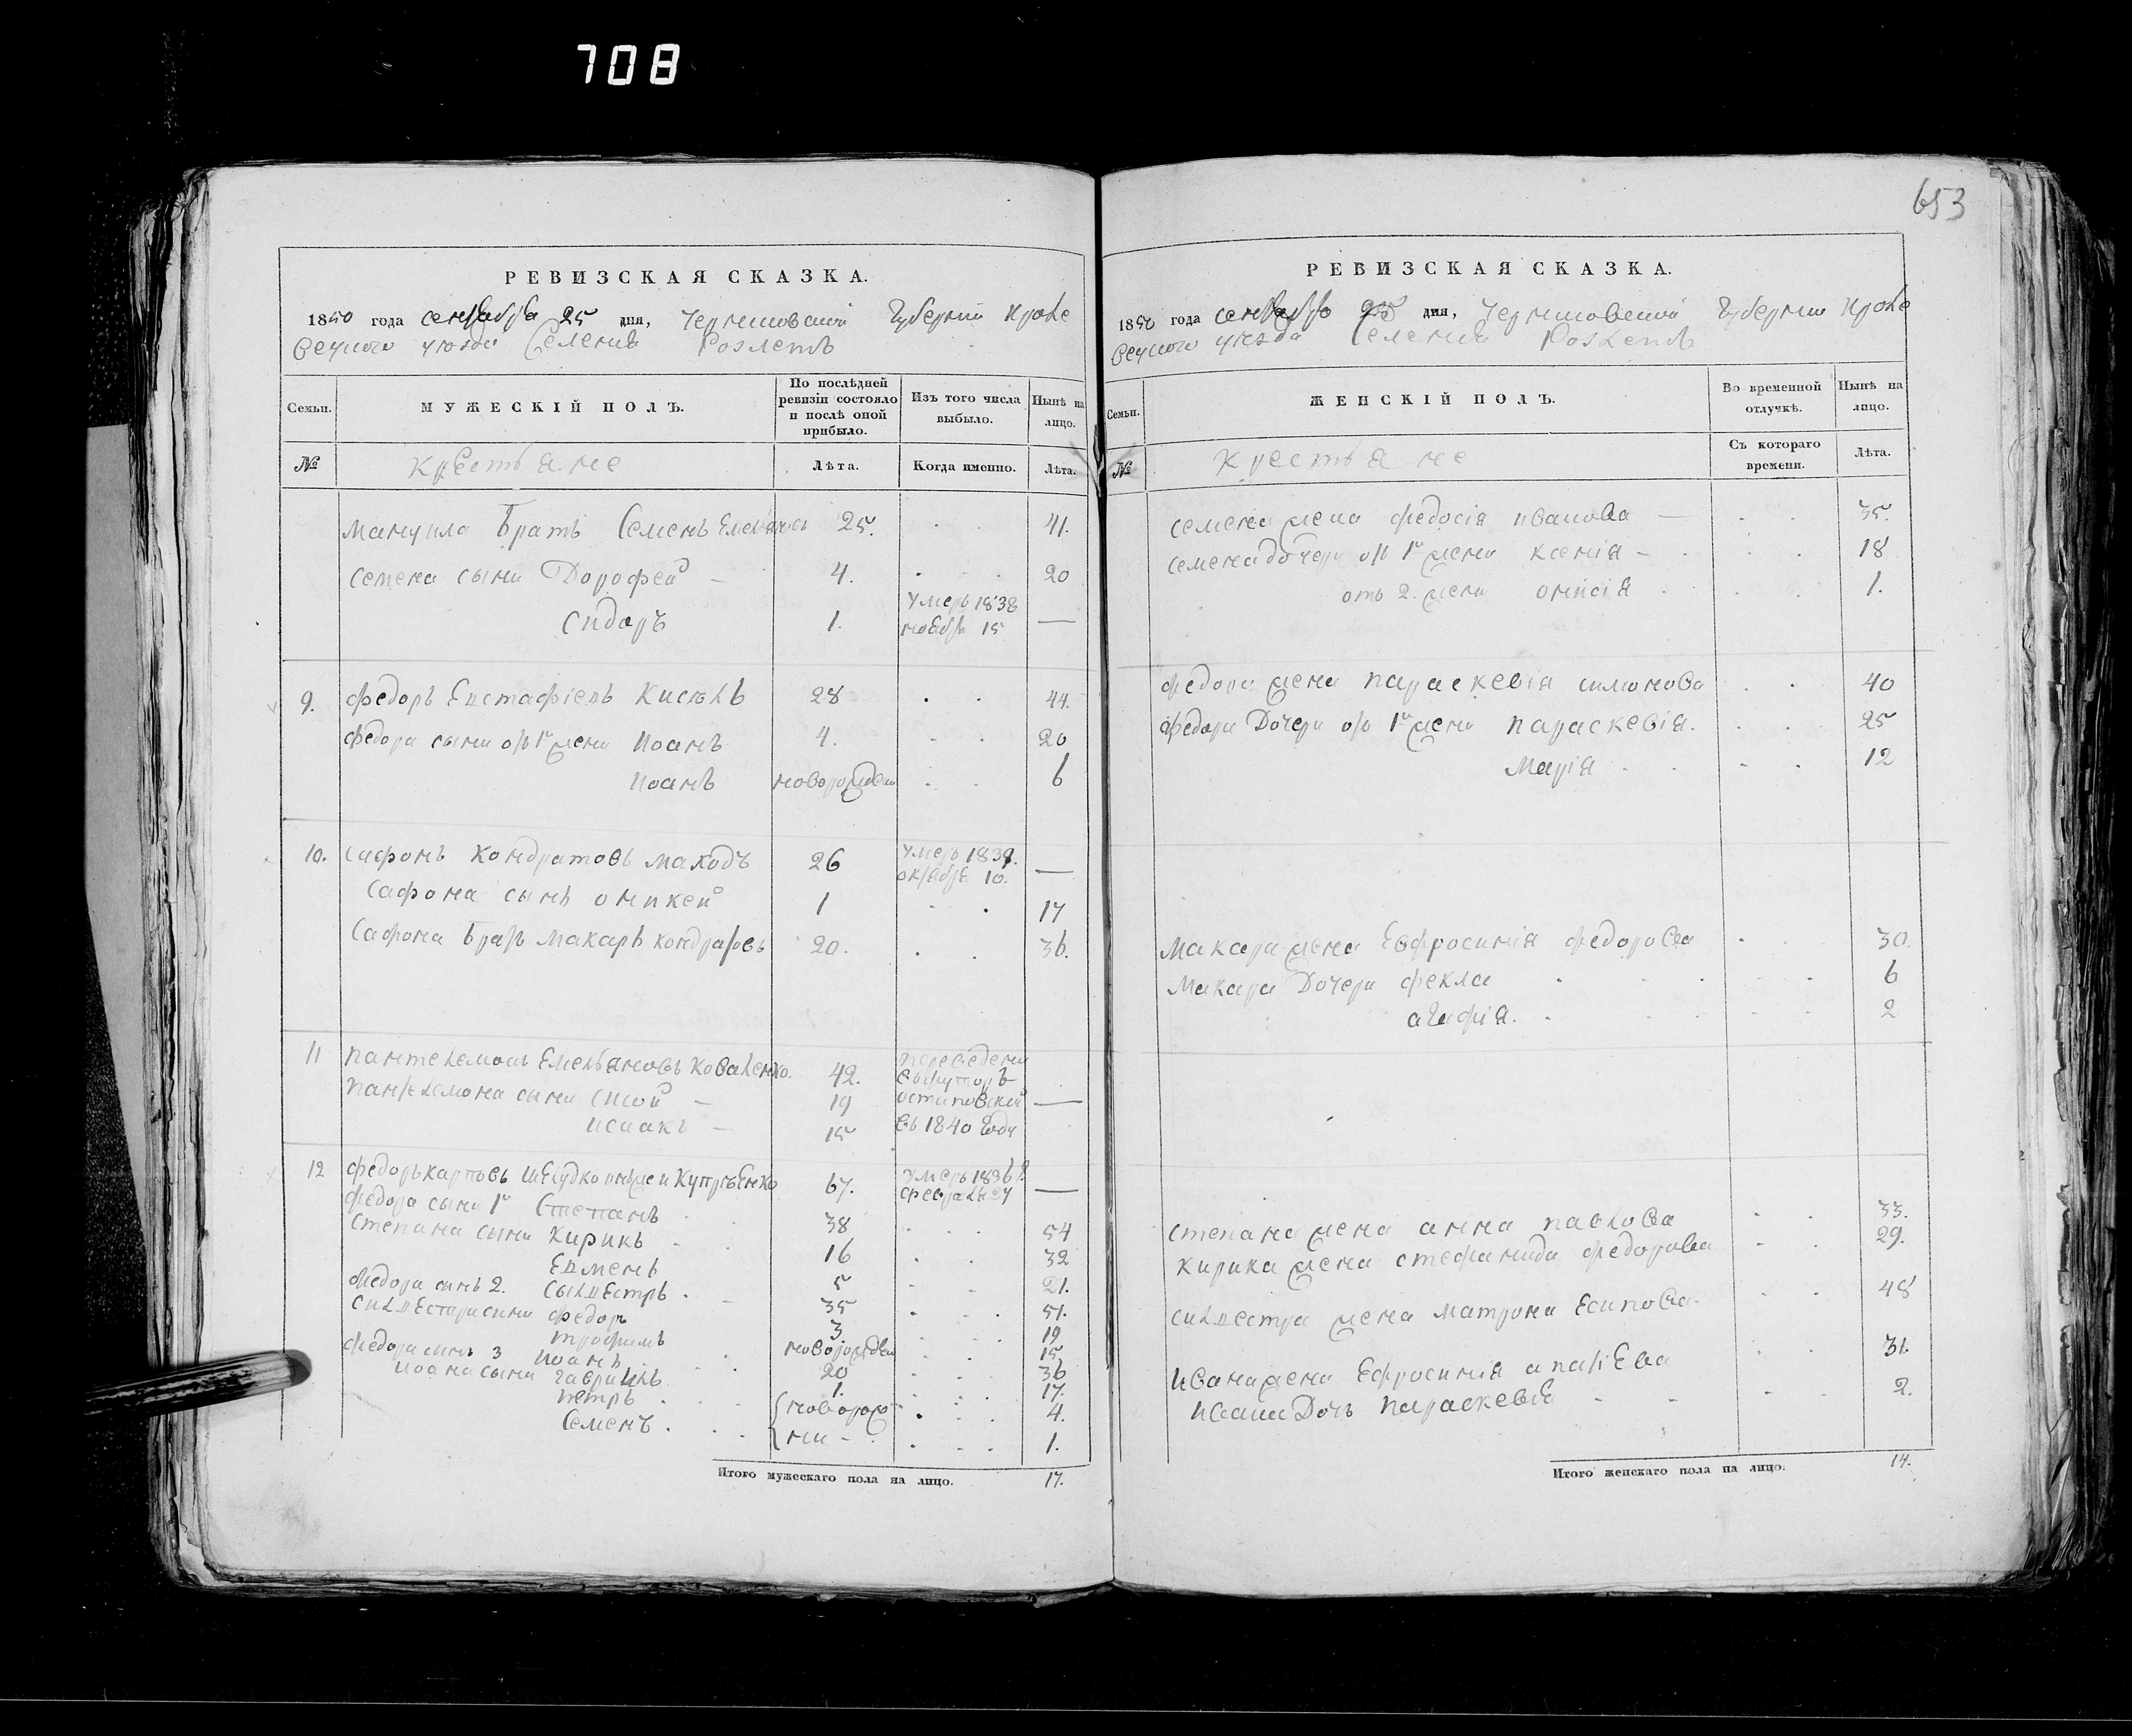 708
653
РЕВИЗСКАЯ СКАЗКА.
1850 года сентября 25 дня, Черниговской Губернии Кроле
вецкого уезда Селения Розлетъ
Семьи.
МУЖЕСКІЙ ПОЛЪ.
По послѣдней ревизіи состояло и послѣ оной прибыло.
Изъ того числа выбыло.
Нынѣ на лицо.
№
Крестьяне
Лѣта.
Когда именно.
Лѣта.
Мануила Братъ Семенъ Емельяновъ 25. 41.
Семена сыни Дорофей 4. 20
Сидоръ 1. умеръ 1838 ноябр 15 —
9. Федоръ Евстафіевъ Кисель 28 44.
Федора сыни от 1й жени Иоанъ 4. 20
Иоанъ новорожден 6
10. Сафонъ Кондратовъ Маходъ 26 умеръ 1839. октября 10. —
Сафона сынъ оникей 1 17
Сафона Братъ Макаръ Кондратовъ 20. 36.
11 Пантелемонъ Емельяновъ Коваленко. 42. переведени
Пантелемона сыни Сисой — 19 вхуторъ осиповский —
Исаакъ — 15 въ 1840 году
12 Федоръ Карповъ Шелудко онже и Купрѣенко 67. умеръ 1836 г. февраля 27 —
Федора сыни 1й Степанъ 38 54
Степана сыни Кирикъ 16 32
Евменъ 5 21.
Федора сынъ 2. Сылвестръ 35 51.
Силвестра сини Федоръ 3 19
Трофимъ новорожден 15
Федора синъ 3 Иоанъ 20 36
Иоана сыни Гаврилъ 1. 17.
Петръ новорож 4.
Семенъ ни 1.
Итого мужескаго пола на лицо. 17.
РЕВИЗСКАЯ СКАЗКА.
1850 года сентября 25 дня, Черниговской Губернии Кроле
вецкого уезда Селения Розлетъ
Семьи.
ЖЕНСКІЙ ПОЛЪ.
Во временной отлучкѣ.
Нынѣ на лицо.
№
Крестьяне
Съ котораго времени.
Лѣта.
Семена жена Федосія Иванова — 35.
Семена дочери от 1й жени Ксенія — 18
отъ 2. жени онисія 1.
Федора жена Параскевія симонова 40
Федора Дочери от 1й жени Параскевія. 25
Марія 12
Макара жена Евфросинія Федорова 30.
Макара Дочери Фекла 6
агафія. 2
Степана жена анна павлова 33.
Кирика жена стефанида Федорова 29.
Силвестра жена Матрона Есипова. 48
Ивана жена Ефросинія 31.
Ивана Дочь Параскевія 2.
Итого женскаго пола на лицо. 14.